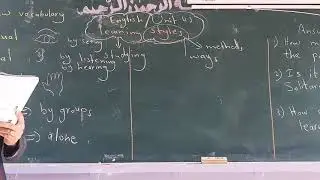 الرحمن الرحيم
w vocabulary
English (Unit 4)
learning styles
ual
by seeing
by studying
by listening
by hearing
ual
methods
ways
=> by groups
=> alone
Answ
1) How m
the p
2) Is it
Solitar
3) How
learn